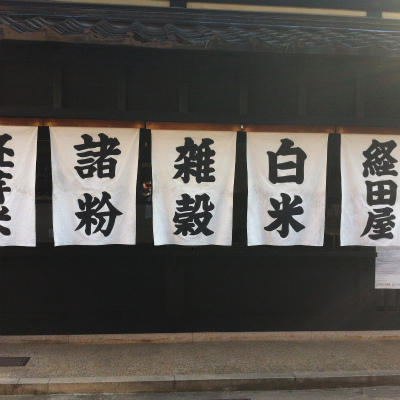 諸粉
雑穀
白米
経田屋